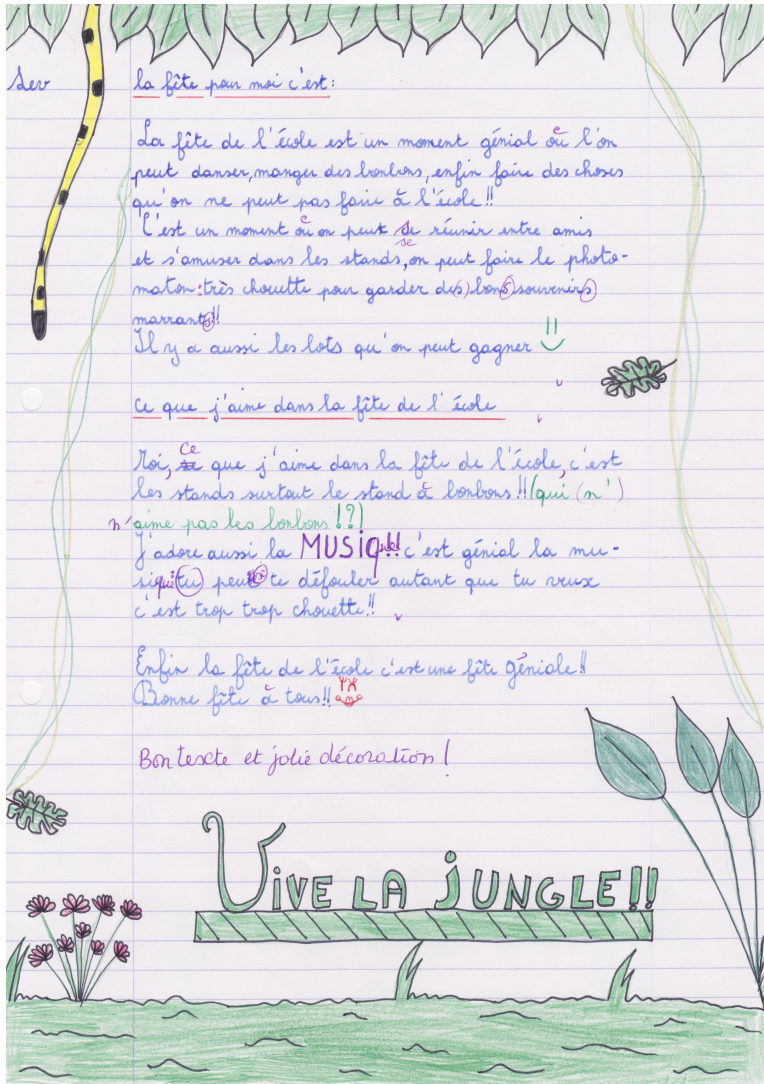 Lev
la fête pour moi c'est :
La fête de l'école est un moment génial où l'on
peut danser, manger des bonbons, enfin faire des choses
qu'on ne peut pas faire à l'école !!
C'est un moment où on peut se réunir entre amis
se
et s'amuser dans les stands, on peut faire le photo-
maton : très chouette pour garder des bons souvenirs
marrants !!
Il y a aussi les lots qu'on peut gagner
Ce que j'aime dans la fête de l'école
Moi, ce que j'aime dans la fête de l'école, c'est
les stands surtout le stand à bonbons !! (qui (n')
n'aime pas les bonbons !?)
J'adore aussi la MUSIQUE !! c'est génial la mu-
sique tu peux te défouler autant que tu veux
c'est trop trop chouette !!
Enfin la fête de l'école c'est une fête géniale !!
Bonne fête à tous !!
Bon texte et jolie décoration !
VIVE LA JUNGLE !!